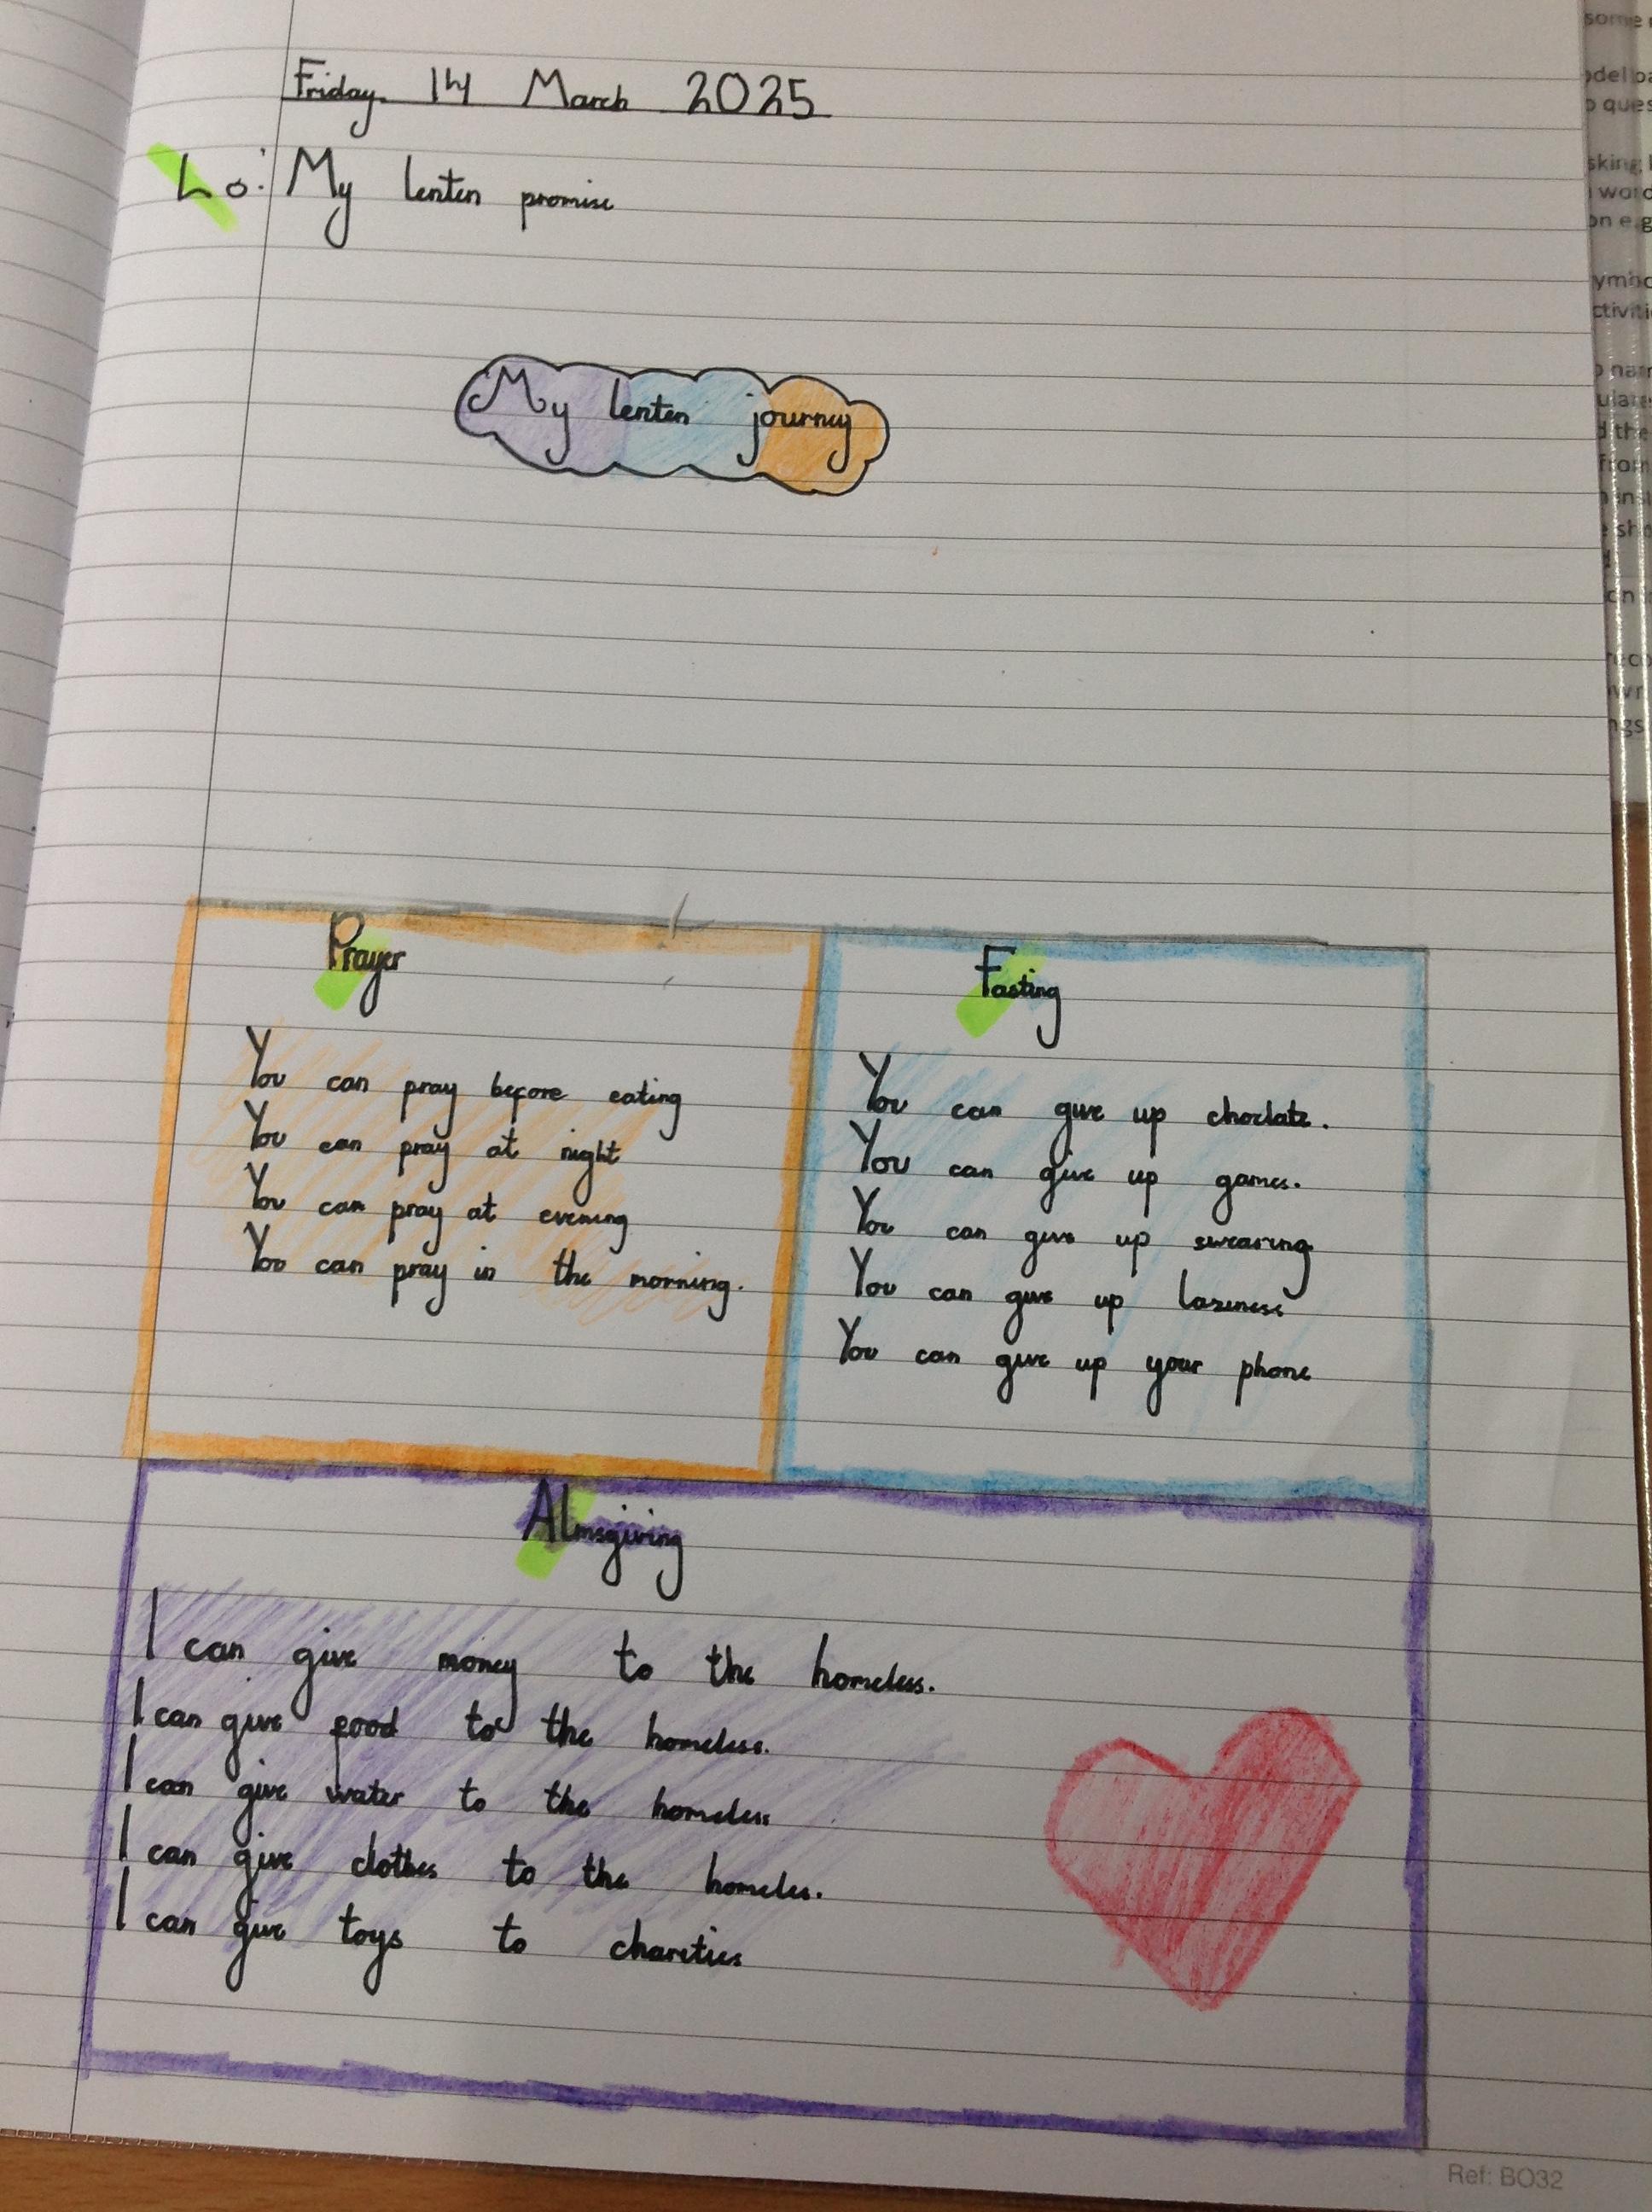 Friday 14 March 2025
Lo: My lenten promise
My lenten journey
Prayer
You can pray before eating
You can pray at night
You can pray at evening
You can pray in the morning.
Fasting
You can give up choclate.
You can give up games.
You can give up swearing
You can give up laziness
You can give up your phone
Almsgiving
I can give money to the homeless.
I can give food to the homeless.
I can give water to the homeless
I can give clothes to the homeles.
I can give toys to charities
Ref: BO32